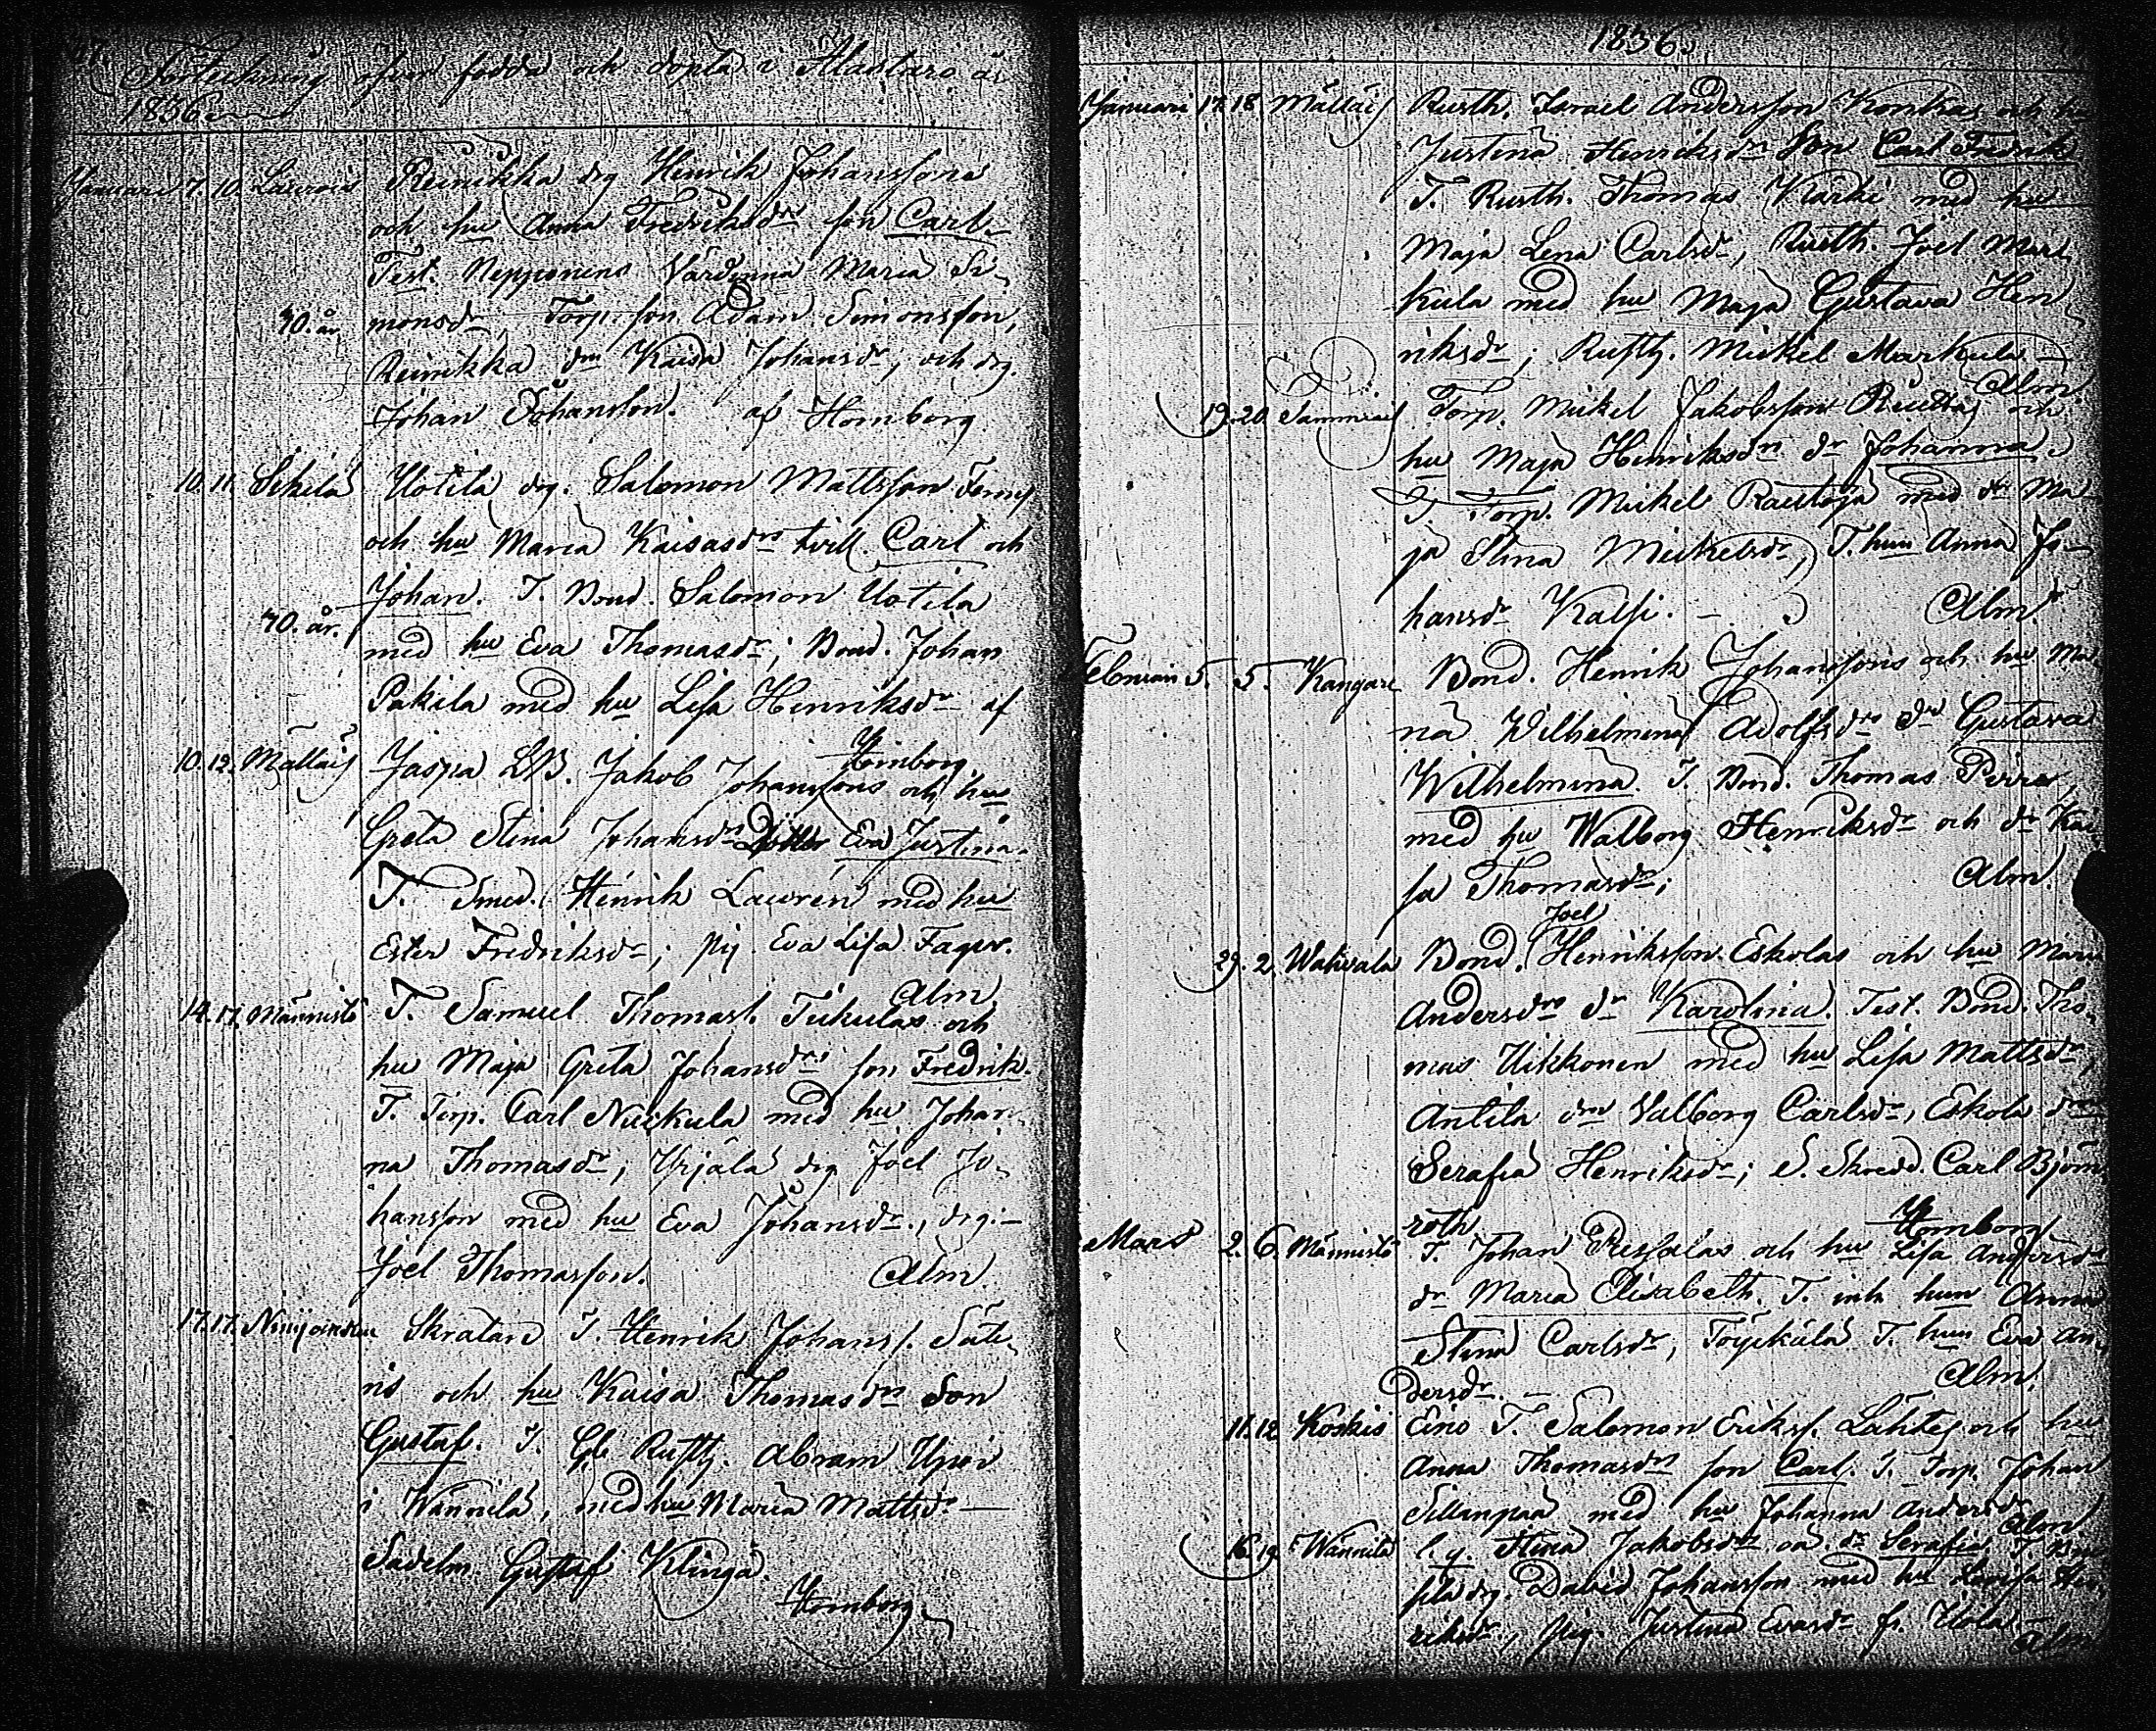 Förteckning öfver födda och döpta i Alastaro år
1836
Januari 7. 10. Laurois Reinikka drg Henrik Johanssons
och hu Anna Fredriksdrs son Carl.
Test. Nepponens Värdinna Maria Si-
40. år. monsdr, Torp. son Adam Simonsson,
Reinikka drn Kaisa Johansdr; och drg.
Johan Johansson. af Hornborg
10. 11. Sikilä Uotila drg. Salomon Mattsson
och hu Maria Kaisasdrs tvill. Carl och
Johan. T. Bond. Salomon Uotila
40. år. med hu Eva Thomasdr; Bond. Johan
Pakila med hu Lisa Henriksdr af
Hornborg
10. 12. Mälläis Jaspa Jakob Johanssons och hus
Greta Stina Johansdrs Dotter Eva Justina.
T. Smed. Henrik Lauren med hu
Ester Fredriksdr; pig. Eva Lisa Fager.
Alm
14. 17. Männistö T. Samuel Thomass. Tiukulas och
hu Maja Greta Johansdrs son Fredrik.
T. Torp. Carl Nuikula med hu Johan-
na Thomasdr, Yrjälä drg Joel Jo-
hansson med hu Eva Johansdr., drg.
Joel Thomasson. Alm.
17. 17. Niinijoensuu Skratare T. Henrik Johanss. Säte-
ris och hu Kaisa Thomasdrs Son
Gustaf. T. Rusth. Abram
i Wännilä, med hu Maria Mattsdr
Sadelm. Gustaf Klinga.
Hornborg
1836.
Januari 17. 18. Mälläis Rusth. Israel Andersson Konkas och hu
Justina Henriksdrs Son Carl Fredrik
T. Rusth. Thomas Kärki med hu
Maja Lena Carlsdr, Rusth. Joel Mar-
kula med hu Maja Gustava Hen-
riksdr; Rusth. Mickel Markula
Alm.
19. 20. Sammais Torp. Mickel Jakobsson och
hu Maja Henriksdrs dr Johanna.
T. Torp. Mickel Rautoja med dr Ma-
ja Stina Mickelsdr, T. hun Anna Jo-
hansdr Kalsi. Alm.
Februari 5. 5. Kangare Bond. Henrik Johanssons och hu Ma-
na Wilhelmina Adolfsdrs dr Gustava
Wilhelmina. T. Bond. Thomas
med hu Walborg Henriksdr och dr Kai-
sa Thomasdr; Alm.
Joel
29. 2. Wahvala Bond. Henriksson Eskolas och hu Maria
Andersdrs dr Karolina. Test. Bond. Tho-
mas Uikkonen med hu Lisa Mattsdr,
Antila drn Valborg Carlsdr, Eskola drn
Serafia Henriksdr; S. Skredd. Carl Björn-
roth. Hornborg
Mars 2. 6. Männistö T. Johan och hu Lisa Andersdrs
dr Maria Elisabeth. T. hun Anna
Stina Carlsdr, T. hun Eva An-
dersdr. Alm.
11. 12. Koskis Eino T. Salomon Eriks. Lähtes och hu
Anna Thomasdrs son Carl. T. Torp. Johan
Sillanpää med hu Johanna Andersdr
Alm
16. 19. Wännilä Stina Jakobsdrs oä. dr Serafia. T.
drg. David Johansson med hu Lovisa Hen-
riksdr, pig. Justina Evasdr fr. Uotila
Alm